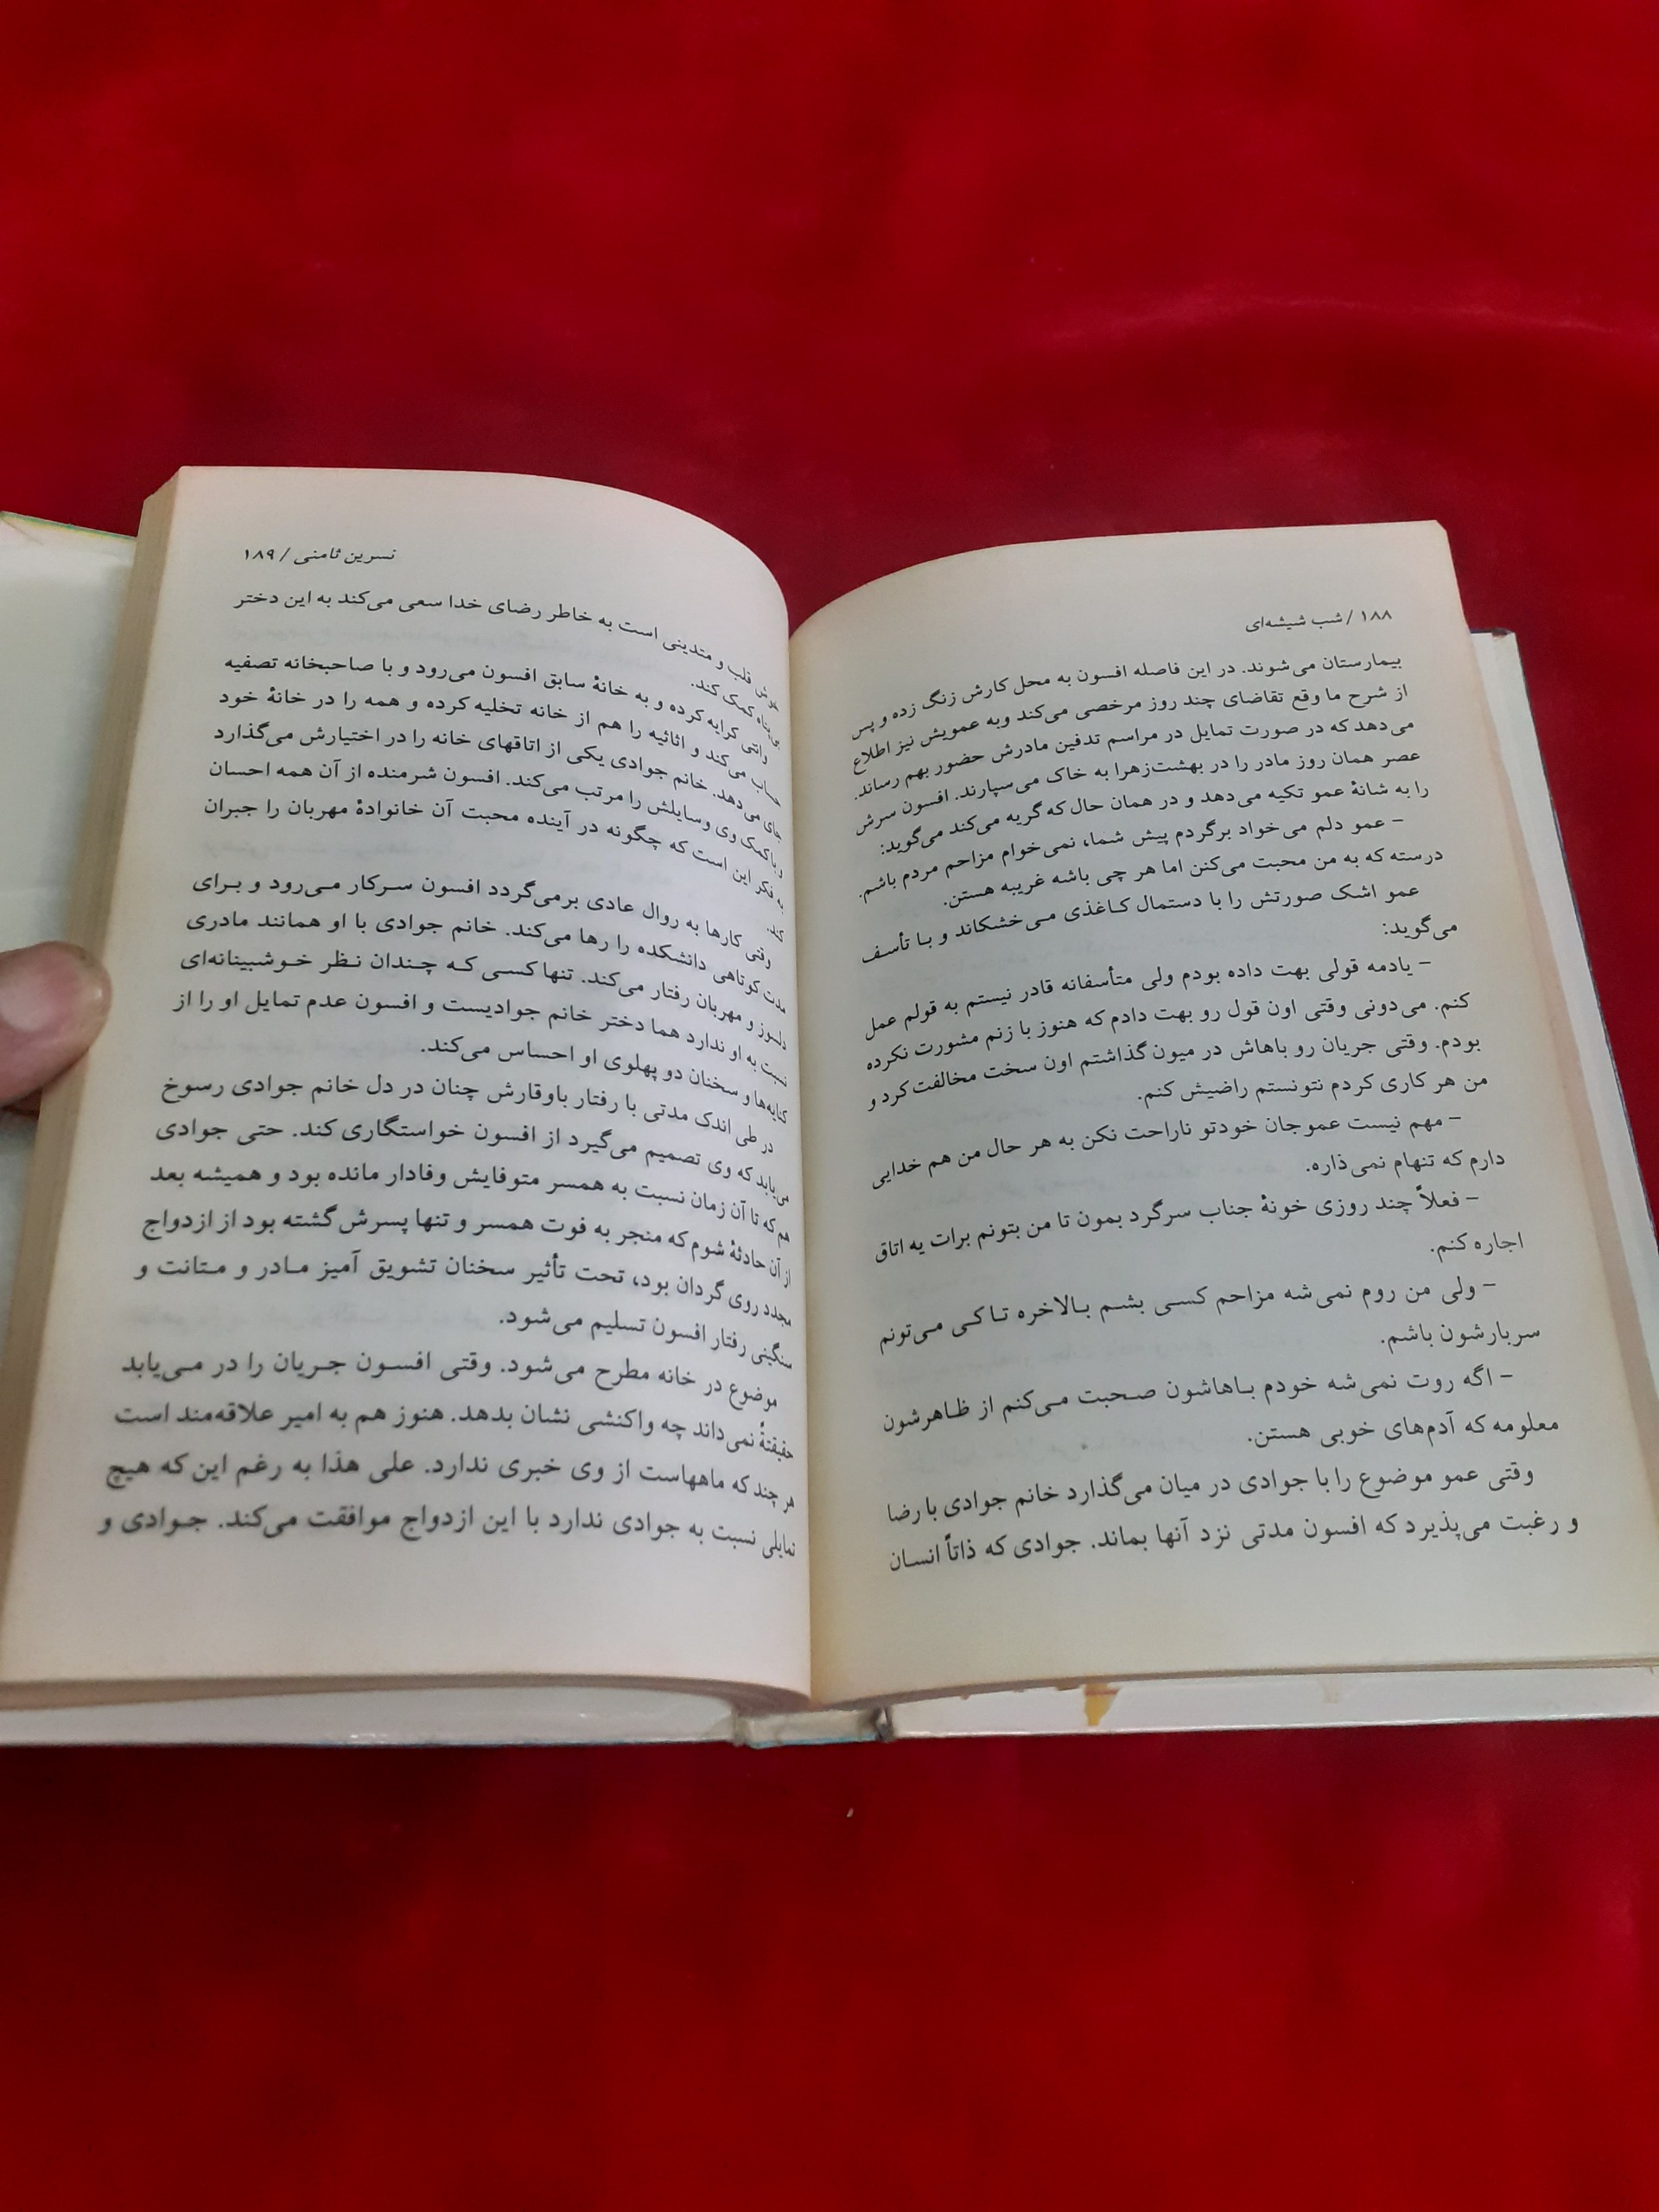 ۱۸۸ / شب شیشه‌ای
بیمارستان می‌شوند. در این فاصله افسون به محل کارش زنگ زده و پس
از شرح ما وقع تقاضای چند روز مرخصی می‌کند وبه عمویش نیز اطلاع
می‌دهد که در صورت تمایل در مراسم تدفین مادرش حضور بهم رساند.
عصر همان روز مادر را در بهشت‌زهرا به خاک می‌سپارند. افسون سرش
را به شانهٔ عمو تکیه می‌دهد و در همان حال که گریه می‌کند می‌گوید:
– عمو دلم می‌خواد برگردم پیش شما، نمی‌خوام مزاحم مردم باشم.
درسته که به من محبت می‌کنن اما هر چی باشه غریبه هستن.
عمو اشک صورتش را با دستمال کاغذی می‌خشکاند و با تأسف
می‌گوید:
– یادمه قولی بهت داده بودم ولی متأسفانه قادر نیستم به قولم عمل
کنم. می‌دونی وقتی اون قول رو بهت دادم که هنوز با زنم مشورت نکرده
بودم. وقتی جریان رو باهاش در میون گذاشتم اون سخت مخالفت کرد و
من هر کاری کردم نتونستم راضیش کنم.
– مهم نیست عموجان خودتو ناراحت نکن به هر حال من هم خدایی
دارم که تنهام نمی‌ذاره.
– فعلاً چند روزی خونهٔ جناب سرگرد بمون تا من بتونم برات یه اتاق
اجاره کنم.
– ولی من روم نمی‌شه مزاحم کسی بشم بالاخره تا کی می‌تونم
سربارشون باشم.
– اگه روت نمی‌شه خودم باهاشون صحبت می‌کنم از ظاهرشون
معلومه که آدم‌های خوبی هستن.
وقتی عمو موضوع را با جوادی در میان می‌گذارد خانم جوادی با رضا
و رغبت می‌پذیرد که افسون مدتی نزد آنها بماند. جوادی که ذاتاً انسان
نسرین ثامنی / ۱۸۹
خوش قلب و متدینی است به خاطر رضای خدا سعی می‌کند به این دختر
بی‌پناه کمک کند.
وانتی کرایه کرده و به خانهٔ سابق افسون می‌رود و با صاحبخانه تصفیه
حساب می‌کند و اثاثیه را هم از خانه تخلیه کرده و همه را در خانهٔ خود
جای می‌دهد. خانم جوادی یکی از اتاقهای خانه را در اختیارش می‌گذارد
و با کمک وی وسایلش را مرتب می‌کند. افسون شرمنده از آن همه احسان
به فکر این است که چگونه در آینده محبت آن خانوادهٔ مهربان را جبران
کند.
وقتی کارها به روال عادی برمی‌گردد افسون سرکار می‌رود و برای
مدت کوتاهی دانشکده را رها می‌کند. خانم جوادی با او همانند مادری
دلسوز و مهربان رفتار می‌کند. تنها کسی که چندان نظر خوشبینانه‌ای
نسبت به او ندارد هما دختر خانم جوادیست و افسون عدم تمایل او را از
کنایه‌ها و سخنان دو پهلوی او احساس می‌کند.
در طی اندک مدتی با رفتار باوقارش چنان در دل خانم جوادی رسوخ
می‌یابد که وی تصمیم می‌گیرد از افسون خواستگاری کند. حتی جوادی
هم که تا آن زمان نسبت به همسر متوفایش وفادار مانده بود و همیشه بعد
از آن حادثهٔ شوم که منجر به فوت همسر و تنها پسرش گشته بود از ازدواج
مجدد روی گردان بود، تحت تأثیر سخنان تشویق آمیز مادر و متانت و
سنگینی رفتار افسون تسلیم می‌شود.
موضوع در خانه مطرح می‌شود. وقتی افسون جریان را در می‌یابد
حقیقتهٔ نمی‌داند چه واکنشی نشان بدهد. هنوز هم به امیر علاقه‌مند است
هر چند که ماههاست از وی خبری ندارد. علی هذا به رغم این که هیچ
تمایلی نسبت به جوادی ندارد با این ازدواج موافقت می‌کند. جوادی و